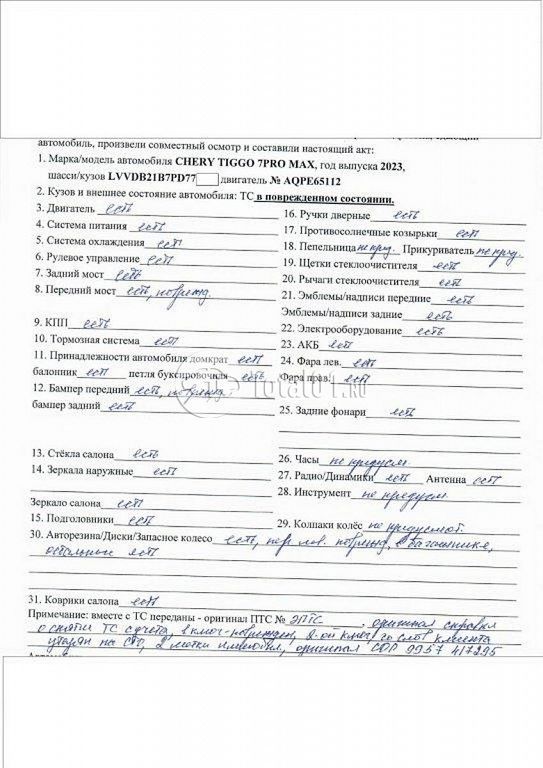 автомобиль, произвели совместный осмотр и составили настоящий акт:
1. Марка/модель автомобиля CHERY TIGGO 7PRO MAX, год выпуска 2023,
шасси/кузов LVVDB21B7PD77 двигатель № AQPE65112
2. Кузов и внешнее состояние автомобиля: ТС в поврежденном состоянии.
3. Двигатель есть
4. Система питания есть
5. Система охлаждения есть
6. Рулевое управление есть
7. Задний мост есть
8. Передний мост есть, поврежд.
9. КПП есть
10. Тормозная система есть
11. Принадлежности автомобиля домкрат есть
балонник есть петля буксировочная есть
12. Бампер передний есть, поврежд.
бампер задний есть
13. Стёкла салона есть
14. Зеркала наружные есть
Зеркало салона есть
15. Подголовники есть
16. Ручки дверные есть
17. Противосолнечные козырьки есть
18. Пепельница не пред. Прикуриватель не пред.
19. Щетки стеклоочистителя есть
20. Рычаги стеклоочистителя есть
21. Эмблемы/надписи передние есть
Эмблемы/надписи задние есть
22. Электрооборудование есть
23. АКБ есть
24. Фара лев. есть
Фара прав. есть
25. Задние фонари есть
26. Часы не предусм.
27. Радио/Динамики есть Антенна есть
28. Инструмент не предусм
29. Колпаки колёс не предусмот.
30. Авторезина/Диски/Запасное колесо есть, пер. лев. поврежд, в багажнике,
остальные есть
31. Коврики салона есть
Примечание: вместе с ТС переданы - оригинал ПТС № ЭПТС, оригинал справки
о снятии ТС с учета, 1 ключ-поврежден, 2-ой ключ, со слов клиента
утерян на СТО, 2 метки имобил, оригинал СОР 9957 417295
Total01.RU